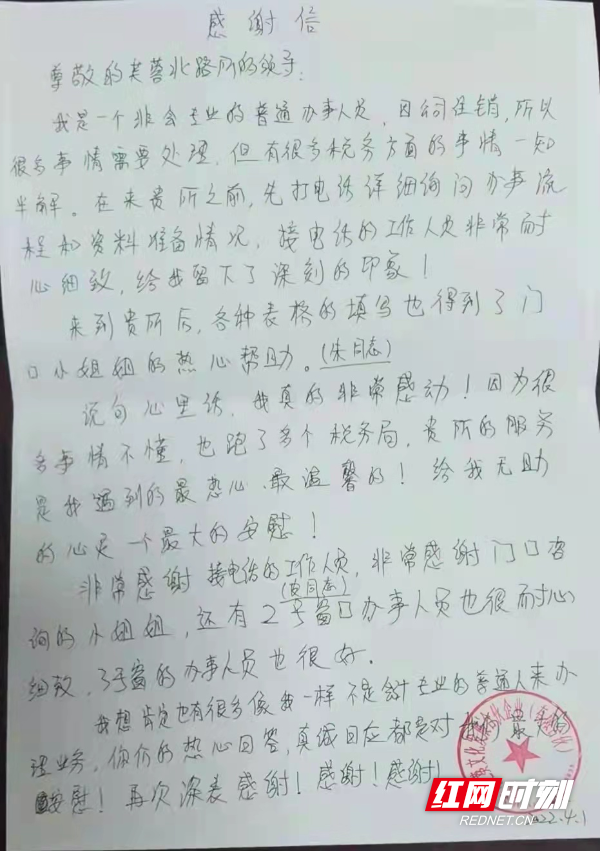 感谢信
尊敬的芙蓉北路所的领导:
我是一个非会专业的普通办事人员,因公司注销,所以
很多事情需要处理,但有很多税务方面的事情一知
半解。在来贵所之前,先打电话详细询问办事流
程和资料准备情况,接电话的工作人员非常耐
心细致,给我留下了深刻的印象!
来到贵所后,各种表格的填写也得到了门
口小姐姐的热心帮助。(朱同志)
说句心里话,我真的非常感动!因为很
多事情不懂,也跑了多个税务局,贵所的服务
是我遇到的最热心、最温馨的!给我无助
的心灵一个最大的安慰!
非常感谢接电话的工作人员,非常感谢门口咨
询的小姐姐,还有2号窗口办事人员也很耐心
细致,3号窗的办事人员也很好.
我想肯定也有很多像我一样不是会计专业的普通人来办
理业务,你们的热心回答,真诚回应都是对我们最大的
安慰!再次深表感谢!感谢!感谢!
2022.4.1
红网时刻
REDNET.CN